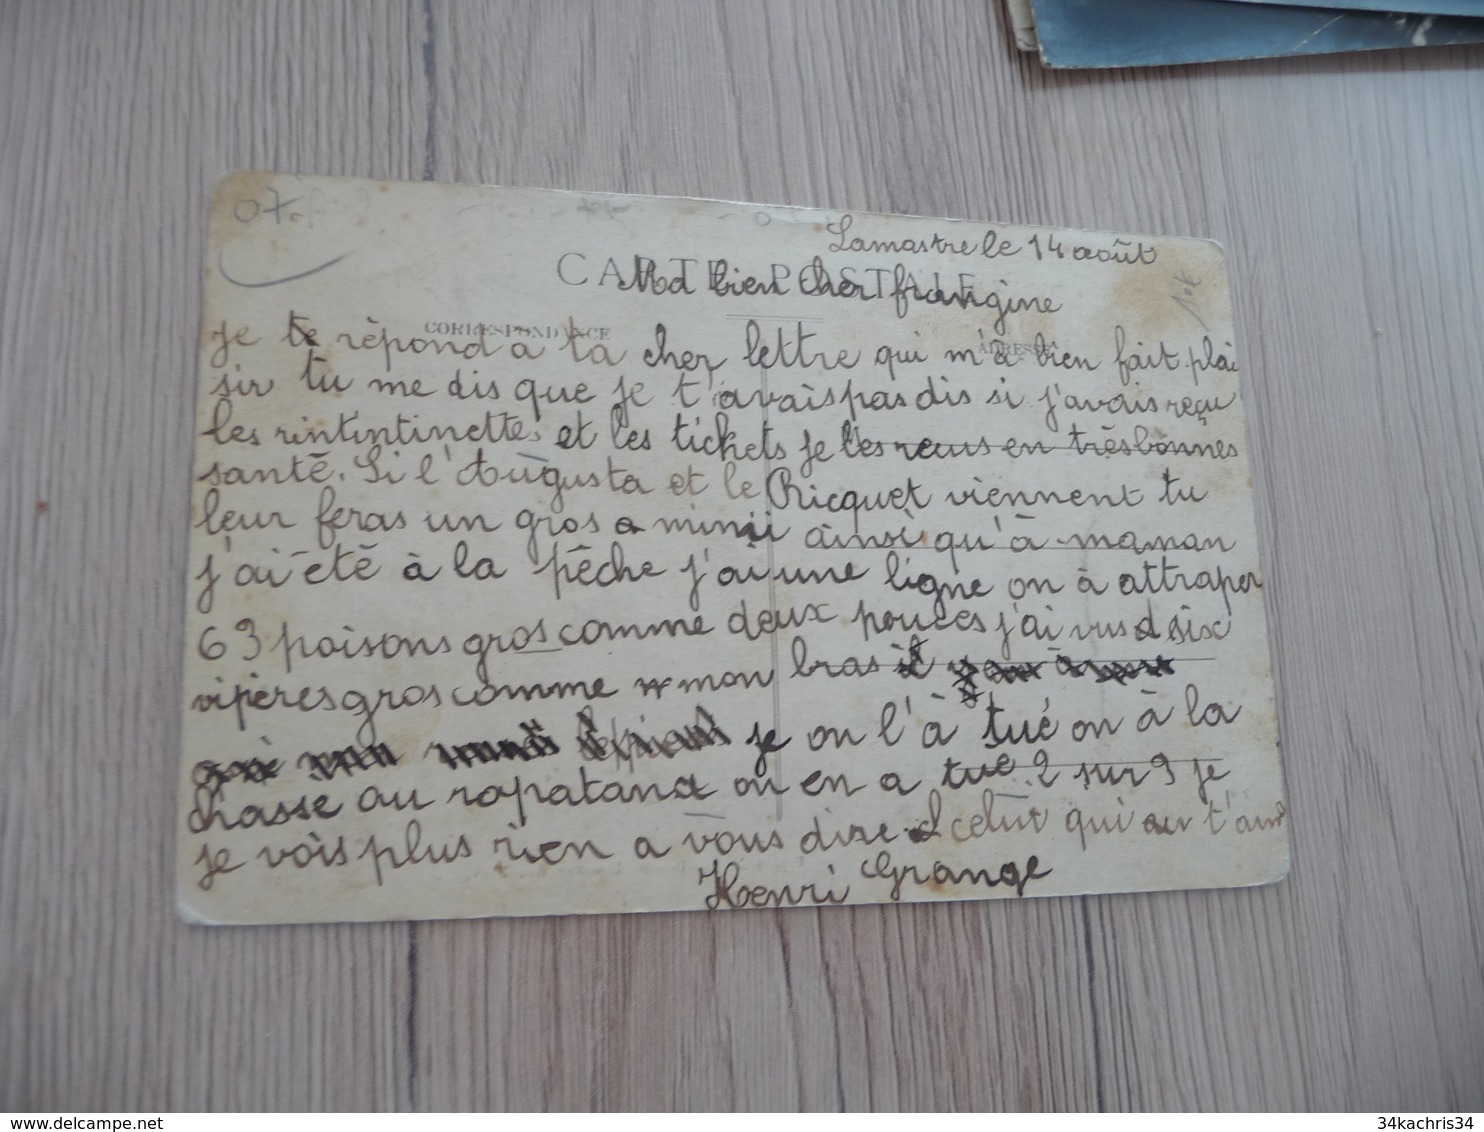 07
Lamastre le 14 août
CARTE POSTALE
Ma bien cher frangine
CORRESPONDANCE
ADRESSE
je te répond a ta cher lettre qui m'à bien fait plai
sir tu me dis que je t'avais pas dis si j'avais reçu
les rintintinettes et les tickets je les reçus en très bonnes
santé. Si l'Augusta et le Ricquet viennent tu
leur feras un gros a minii ainsi qu'à maman
j'ai été à la pêche j'ai une ligne on à attraper
63 poisons gros comme deux pouces j'ai vus dsix
vipères gros comme mon bras
je on l'à tué on à la
chasse au rapatana on en a tué 2 sur 9 je
je vois plus rien a vous dire celui qui t'aime
Henri Grange
34kachris34